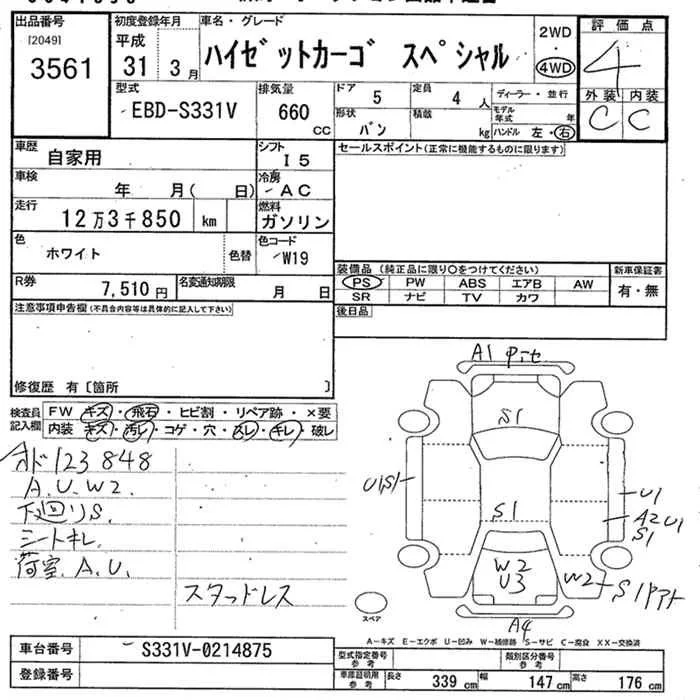 出品番号
[2049]
3561
初度登録年月
平成
31 3月
車名・グレード
ハイゼットカーゴ スペシャル
2WD
・
4WD
評価点
4
外装 内装
C C
型式
EBD-S331V
排気量
660
CC
ドア
5
定員
4 人
ディーラー・並行
形状
バン
積載
kg
モデル年式 年
ハンドル 左・右
車歴
自家用
シフト
I5
車検
年 月( 日)
冷房
AC
走行
12万3千850 km
燃料
ガソリン
色
ホワイト
色替
色コード
W19
R券
7,510円
名変通知期限
月 日
セールスポイント(正常に機能するものに限ります)
装備品(純正品に限り○をつけてください)
PS PW ABS エアB AW
SR ナビ TV カワ
新車保証書
有・無
後日品
注意事項申告欄(不具合内容等は具体的に記入して下さい)
修復歴 有〔箇所 〕
検査員記入欄
FW キズ・飛石・ヒビ割・リペア跡・×要
内装 キズ・汚レ・コゲ・穴・スレ・キレ・破レ
メド123848
A.U.W2.
下廻りS.
シートキレ
荷室.A.U.
スタッドレス
A1
S1
U1S1
S1
U1
A2U1
S1
W2
U3
W2
S1
A4
スペア
A-キズ E-エクボ U-凹み W-補修跡 S-サビ C-腐食 XX-交換済
車台番号
S331V-0214875
登録番号
型式指定番号
参考
類別区分番号
参考
車庫証明用
参考
長さ 339 cm 幅 147 cm 高さ 176 cm